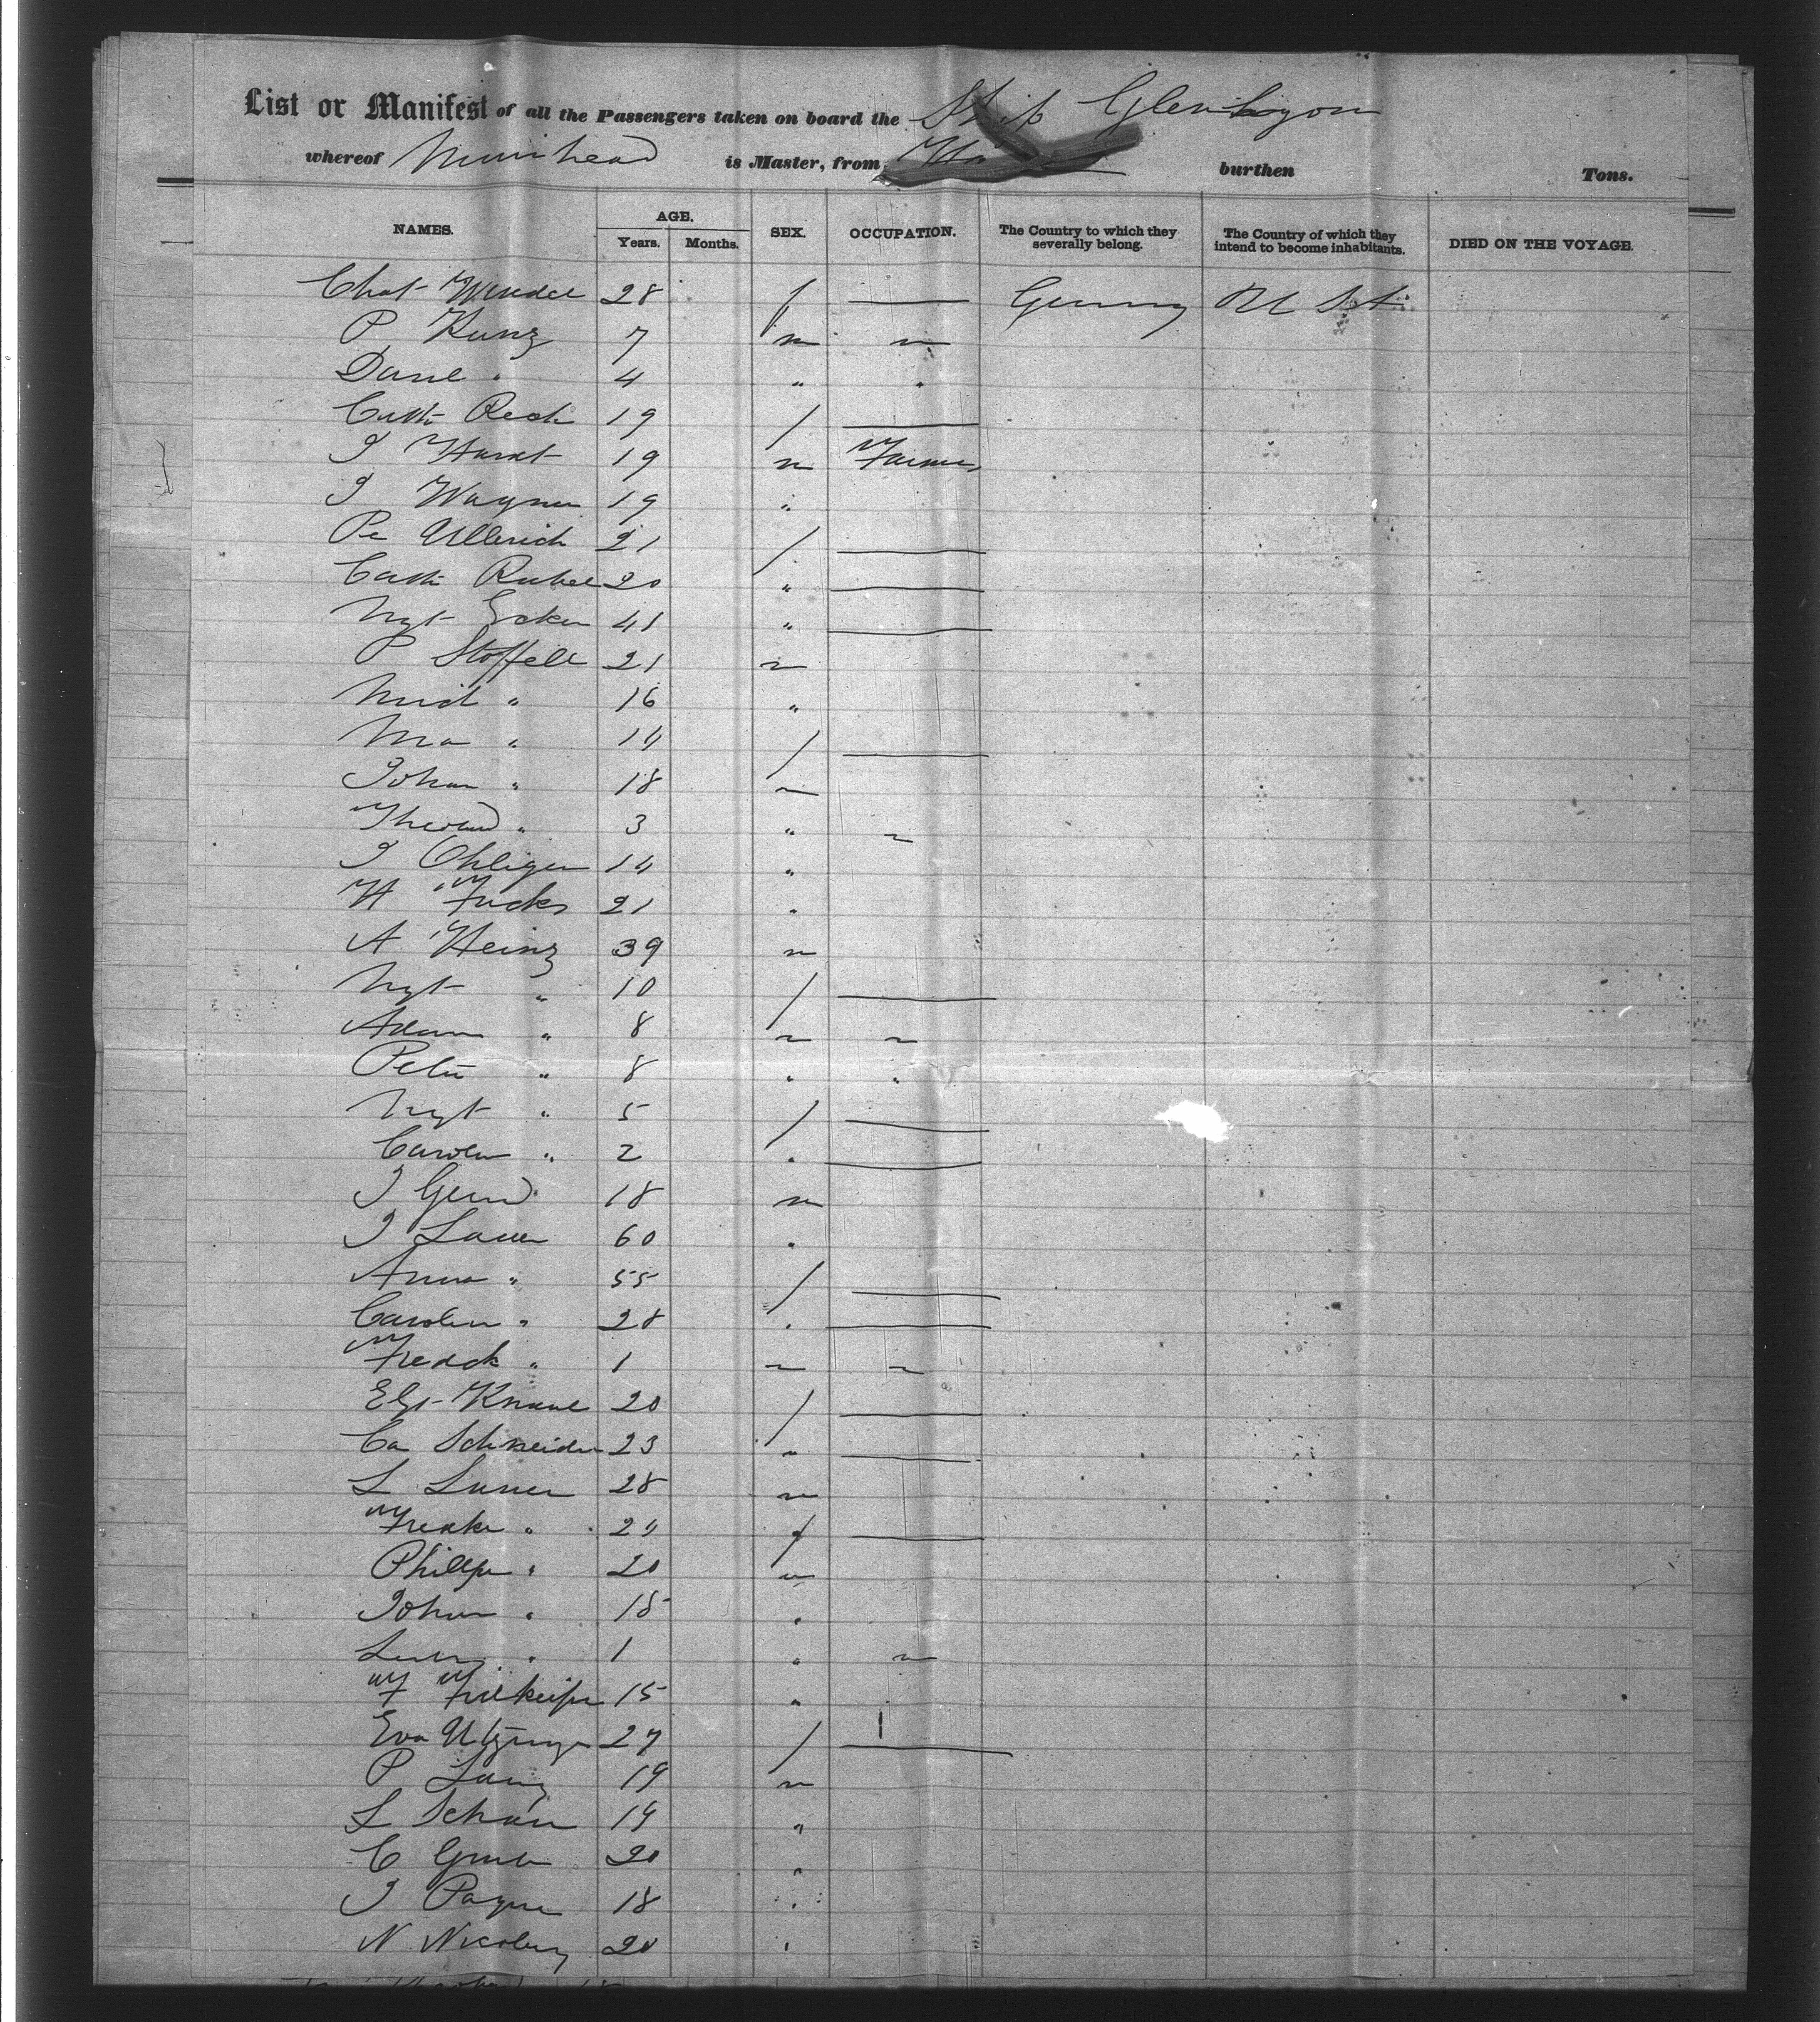 List or Manifest of all the Passengers taken on board the Ship Glenlyon
whereof Muirhead is Master, from burthen Tons.
NAMES. AGE. Years. Months. SEX. OCCUPATION. The Country to which they severally belong. The Country of which they intend to become inhabitants. DIED ON THE VOYAGE.
Chat Wendel 28 f — Germy U St
P. Kunz 7 m ~
Danl " 4 " "
Cath 19 f —
J 19 m Farmer
J Wagner 19 "
Pe Ullerich 21 f —
Cath Rubel 20 " —
Mgt Ecker 41 " —
P Stoffell 21 m
Mich " 16 "
Ma " 14 f —
Johan " 18 m
" 3 " ~
J Ohliger 14 "
H Fucks 21 "
A Heinz 39 m
Mgt " 10 f —
Adam " 8 m ~
Peter " 8 " "
Mgt " 5 f —
Carolin " 2 " —
J 18 m
J Lauer 60 "
Anna " 55 f —
Carolin " 28 " —
Fredck " 1 m ~
Elz Knaul 20 f —
Ca Schneider 23 " —
L 28 m
" 24 f —
Phillip " 20 m
Johan " 18 "
" 1 " ~
F 15 "
Eva 27 f —
P Lang 19 m
L Schan 19 "
C 20 "
J 18 "
N Nicolay 20 "